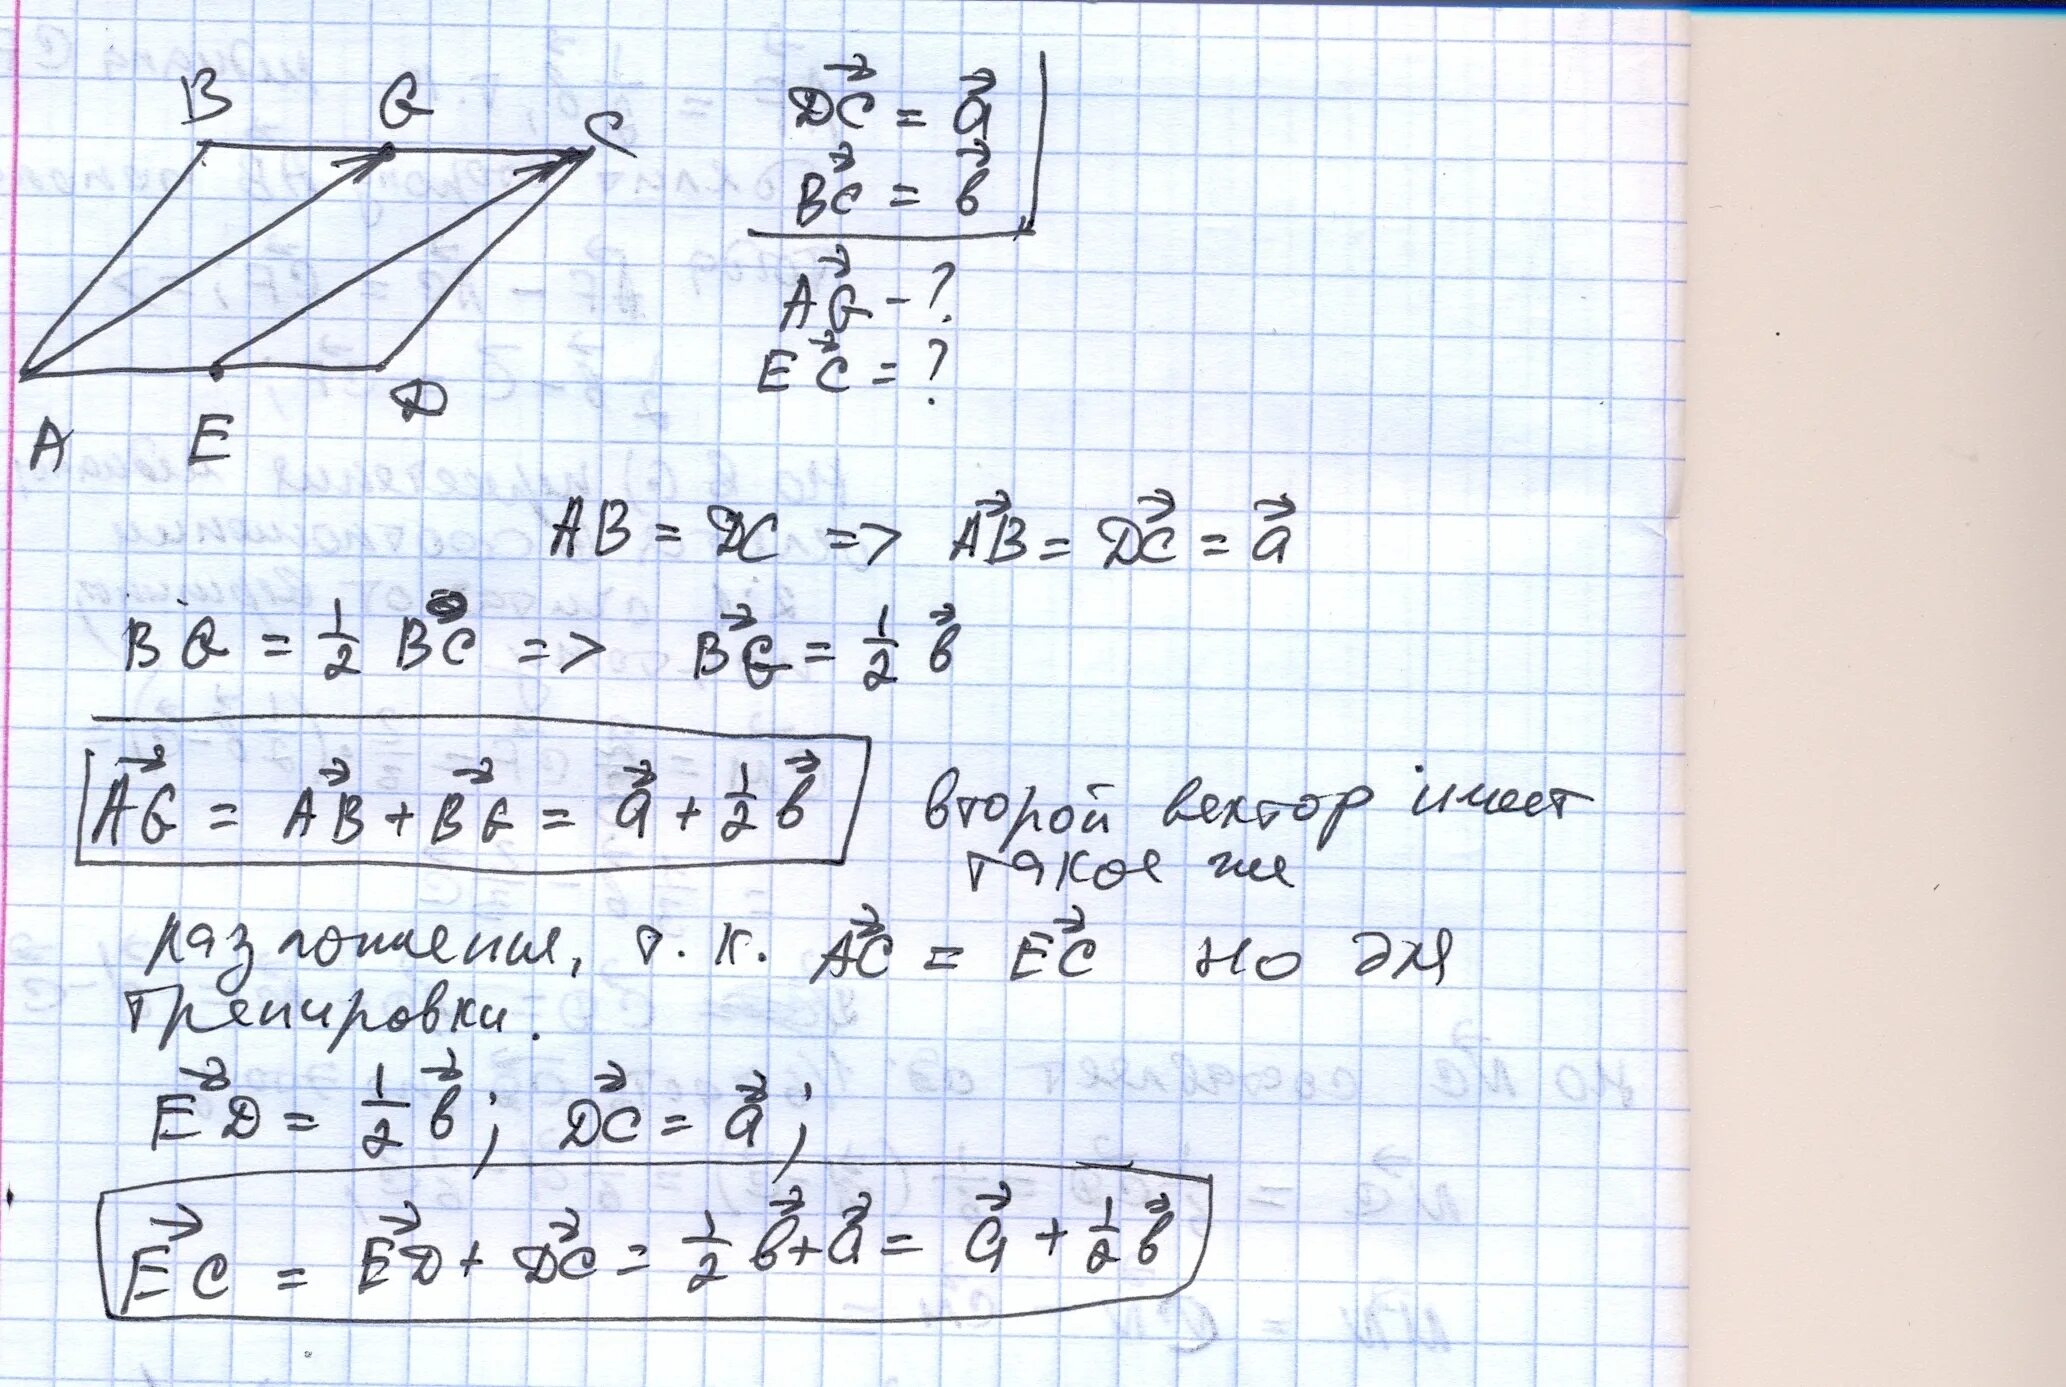 B G C
A E D
DC→ = a→
BC→ = b→
AG→ - ?
EC→ = ?
AB = DC => AB→ = DC→ = a→
BG = 1/2 BC => BG→ = 1/2 b→
AG→ = AB→ + BG→ = a→ + 1/2 b→
второй вектор имеет
такое же
разложения, т. к. AC→ = EC→ но для
тренировки.
ED→ = 1/2 b→; DC→ = a→;
EC→ = ED→ + DC→ = 1/2 b→ + a→ = a→ + 1/2 b→